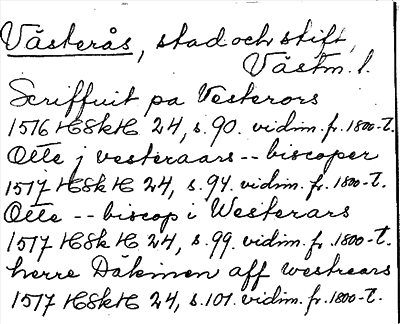 Västerås, stad och stift,
Västm. l.
Scriffuit pa Vesterors
1516 HSkH 24, s. 90. vidim. fr. 1800-t.
Otte j vesteraars -- biscoper
1517 HSkH 24, s. 94. vidim. fr. 1800-t.
Otte -- biscop i Westerars
1517 HSkH 24, s. 99. vidim. fr. 1800-t.
herre Däkinen aff westraars
1517 HSkH 24, s. 101. vidim. fr. 1800-t.